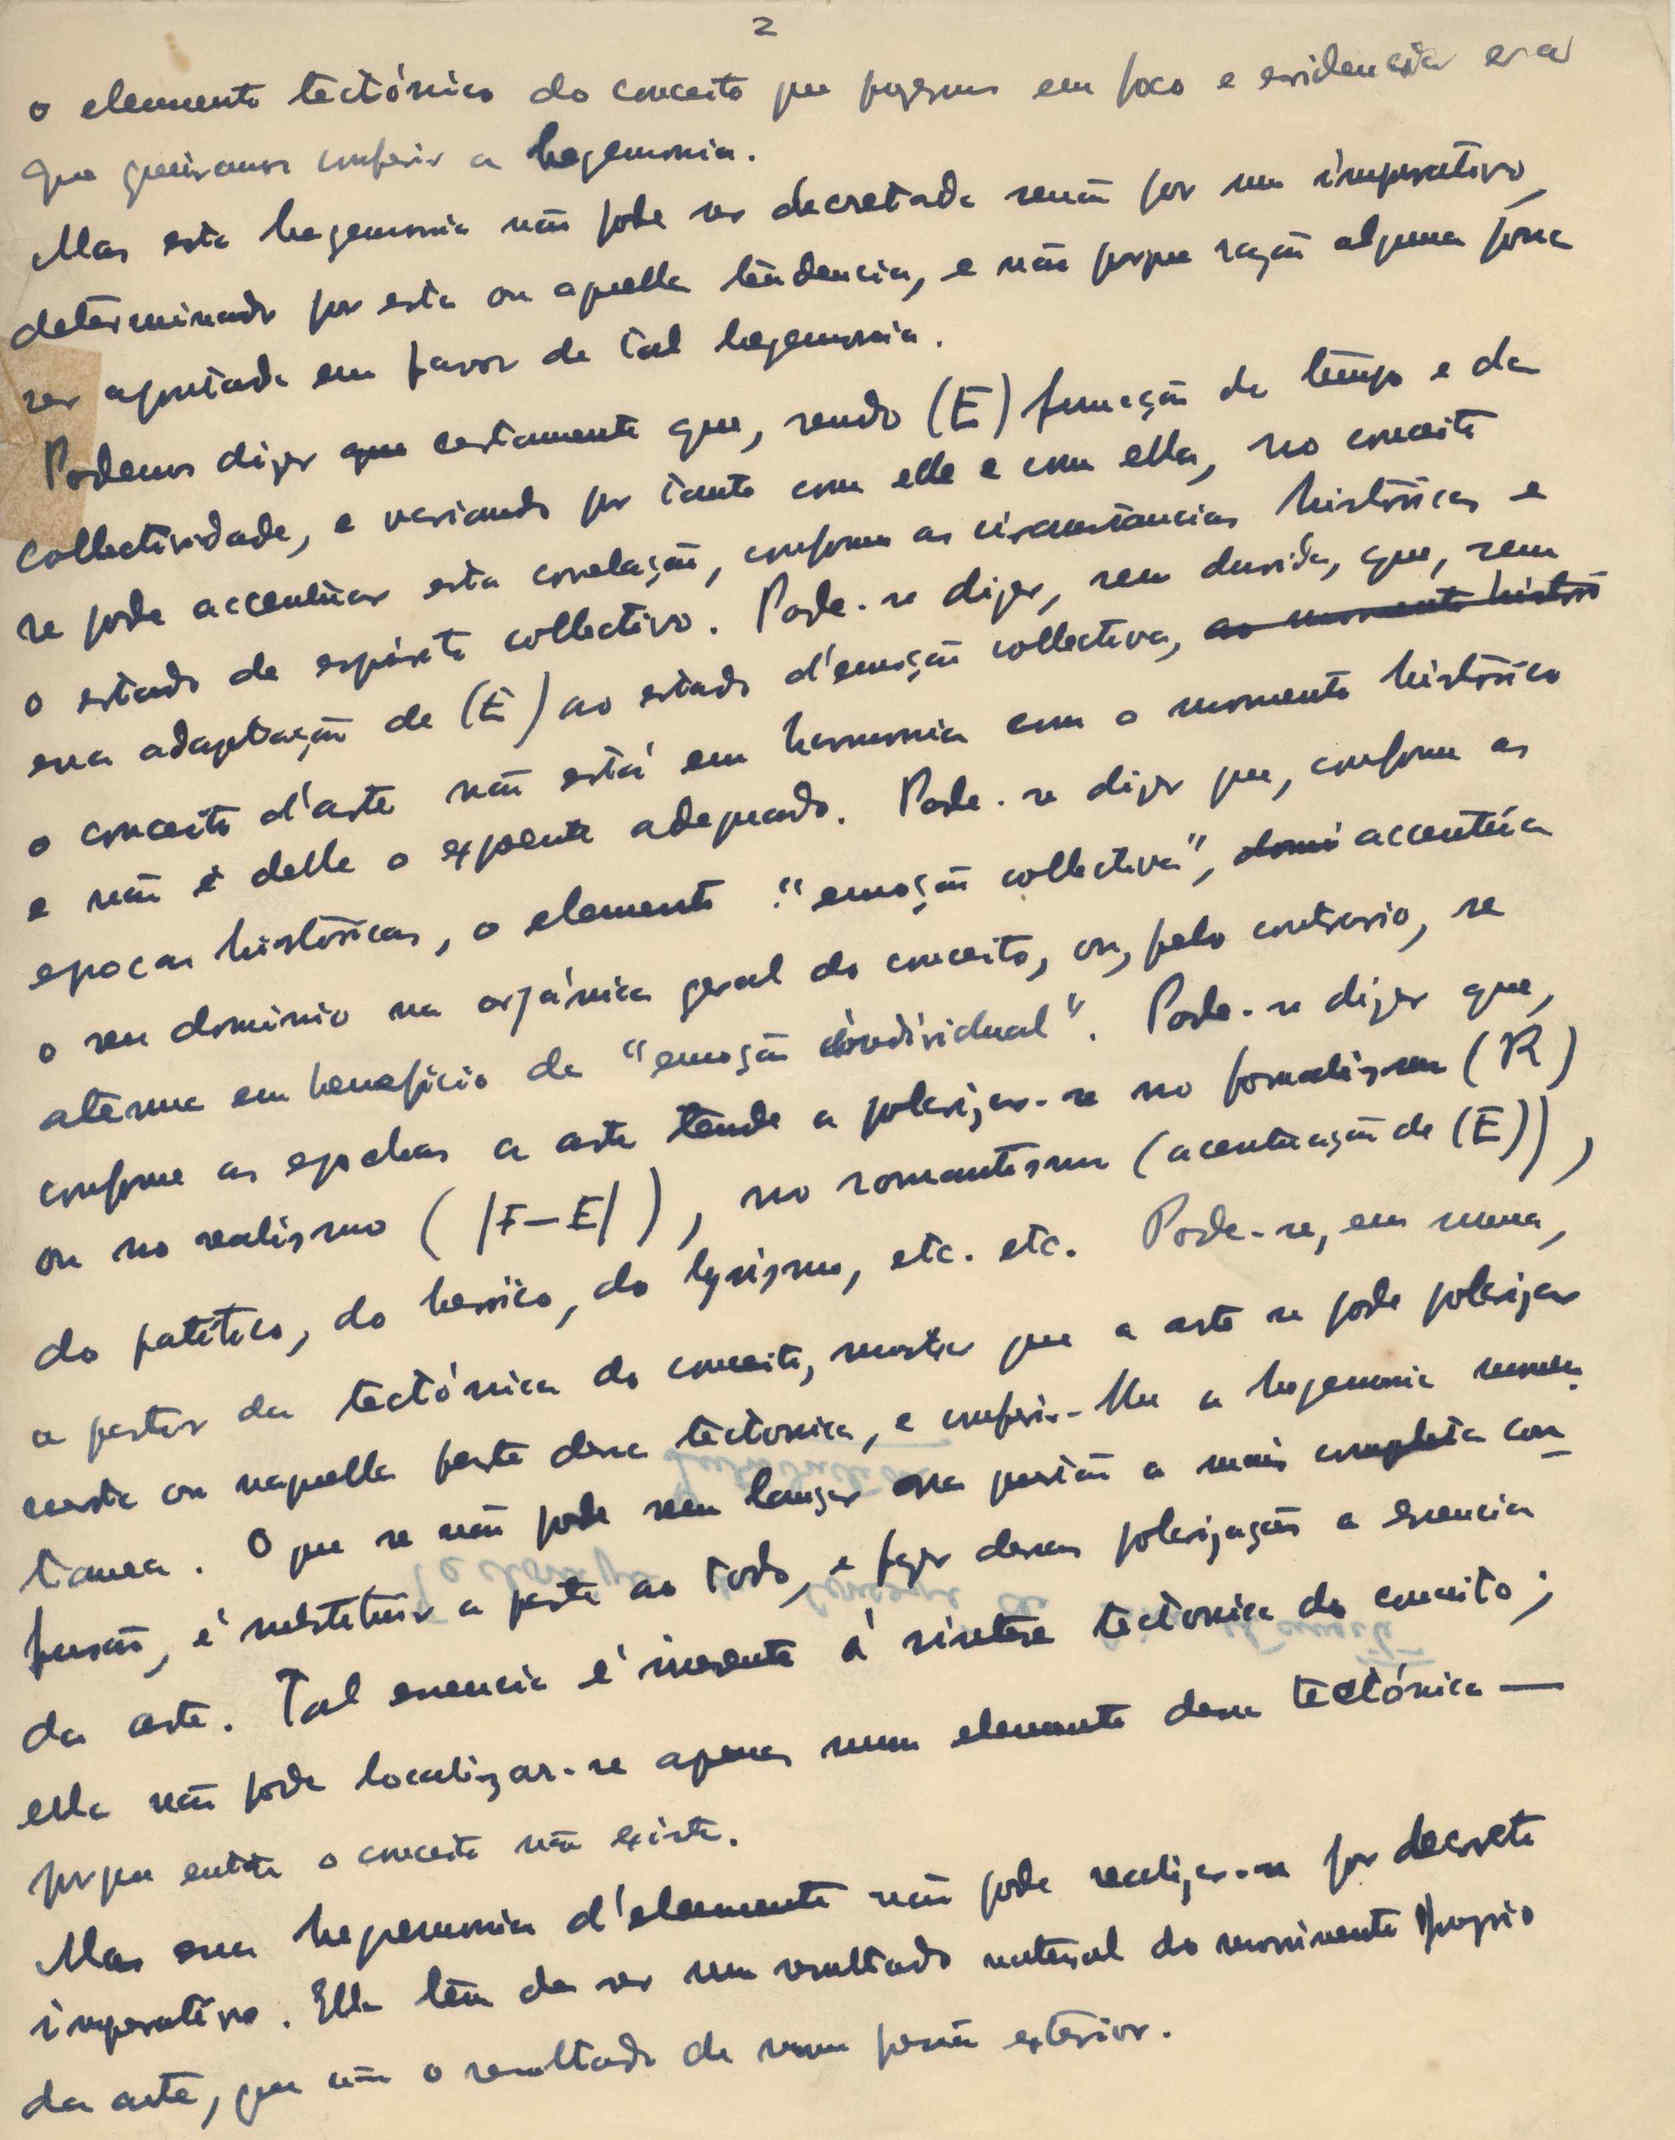 2
o elemento tectónico do conceito que puzermos em foco e evidencia e a
que queiramos conferir a hegemonia.
Mas esta hegemonia não pode ser decretada senão por um imperativo
determinado por esta ou aquella tendencia, e não porque razão alguma possa
ser apontada em favor de tal hegemonia.
Podemos dizer que certamente que, sendo (E) funcção do tempo e da
collectividade, e variando por tanto com elle e com ella, no conceito
se pode accentuar esta correlação, conforme as circunstancias históricas e
o estado de espirito collectivo. Pode-se dizer, sem duvida, que, sem
essa adaptação de (E) ao estado d'emoção collectiva, ao momento histori
o conceito d'arte não está em harmonia com o momento histórico
e não é delle o expoente adequado. Pode-se dizer que, conforme as
epocas históricas, o elemento "emoção collectiva", domi accentúa
o seu dominio na orgánica geral do conceito, ou, pelo contrario, se
atenua em beneficio da "emoção individual". Pode-se dizer que,
conforme as epochas a arte tende a polarizar-se no formalismo (R)
ou no realismo (|F—E|), no romantismo (acentuação de (E)),
do patético, do heroico, do lyrismo, etc. etc. Pode-se, em suma,
a partir da tectónica do conceito, mostrar que a arte se pode polarizar
nesta ou naquella parte dessa tectonica, e conferir-lhe a hegemonia momen
tanea. O que se não pode sem lançar na questão a mais completa con
fusão, é substituir a parte ao todo, e fazer dessa polarização a essencia
da arte. Tal essencia é inerente á sintese tectonica do conceito;
ella não pode localizar-se apenas num elemento dessa tectónica —
porque então o conceito não existe.
Mas essa hegemonia d'elemento não pode realizar-se por decreto
imperativo. Ella tem de ser um resultado natural do movimento proprio
da arte, que não o resultado de uma pressão exterior.